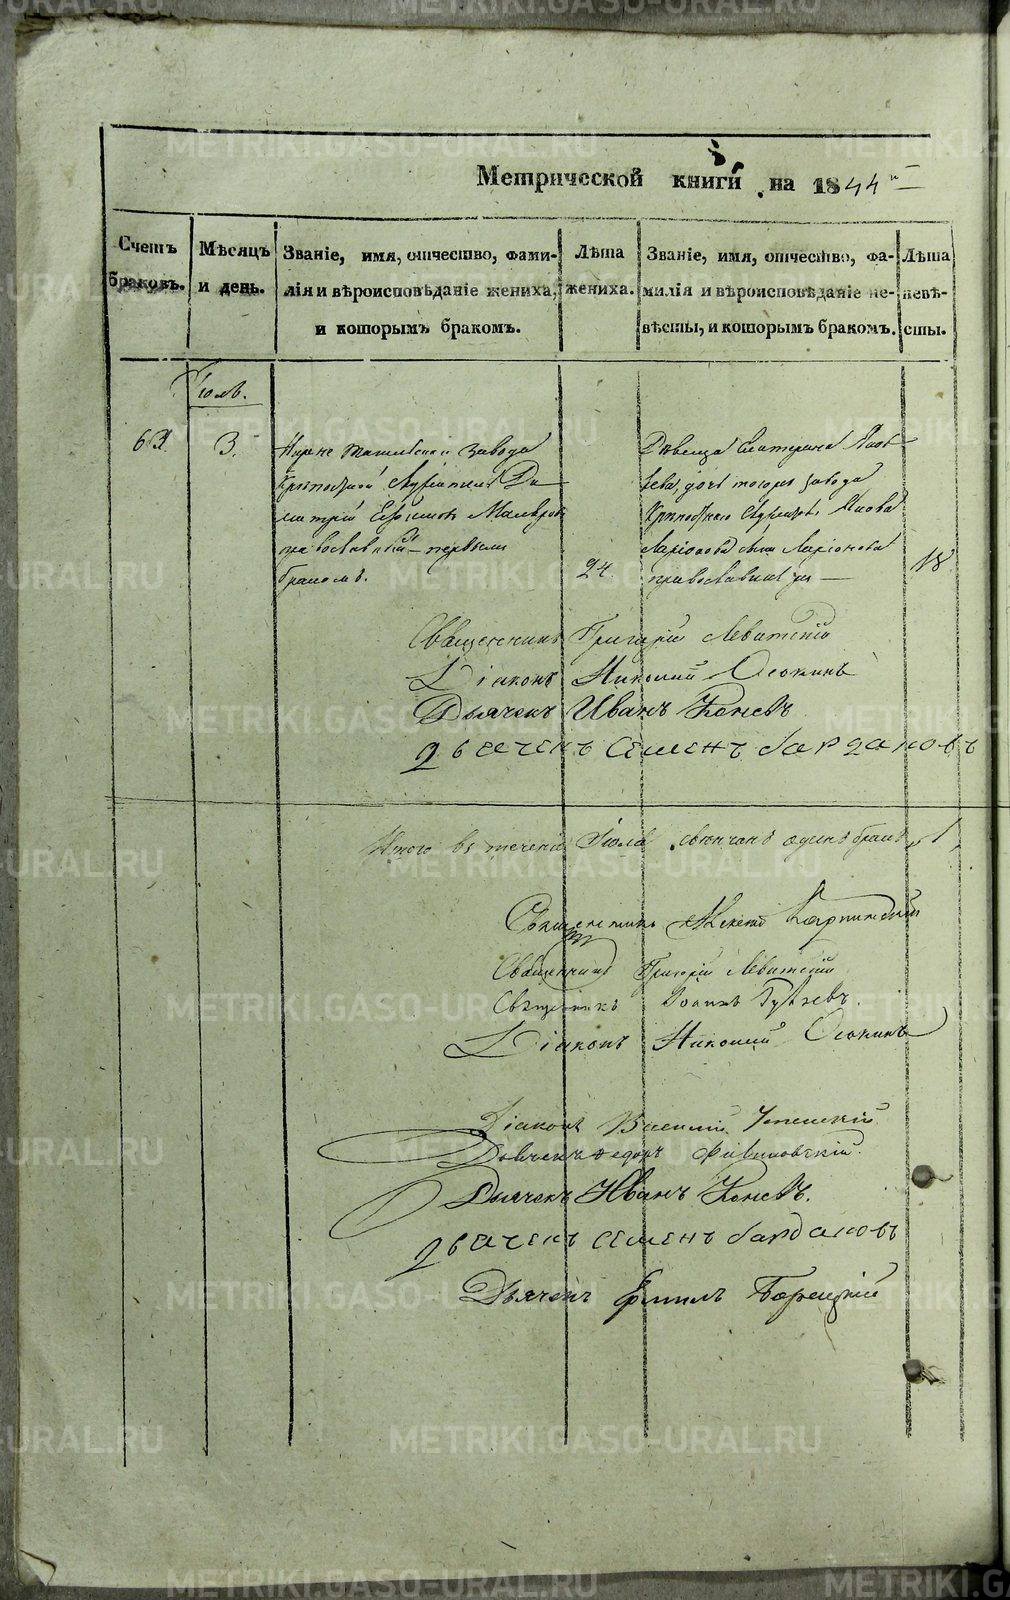 Метрической книги на 1844 й
Счетъ браковъ.
Мѣсяцъ и день.
Званіе, имя, отчество, фами-
лія и вѣроисповѣданіе жениха,
и которымъ бракомъ.
Лѣта жениха.
Званіе, имя, отчество, фа-
милія и вѣроисповѣданіе не-
вѣсты, и которымъ бракомъ.
Лѣта невѣ-
сты.
Іюль.
3.
Нижне тагильскаго завода
Крѣпостной
Ди
митрій Ефимовъ
православный – первымъ
бракомъ.
24.
Дѣвица Екатерина Яков
лева, дочь тогоже завода
Якова
Ларіонова
православная
18
Священникъ Григорій Левитскій
Діаконъ Николай Осокинъ
Дьячекъ Иванъ Коневъ
Дьячекъ Семенъ бардановъ
Итого въ теченіи Іюля свѣнчанъ одинъ бракъ „1„
Священникъ Карпинскій
Священникъ Григорій Левитскій
Священникъ Іоаннъ
Діаконъ Николай Осокинъ
Діаконъ Василій Успенскій
Дьячекъ Федоръ
Дьячекъ Иванъ Коневъ.
Дьячекъ Семенъ бардановъ
Дьячекъ
METRIKI.GASO-URAL.RU